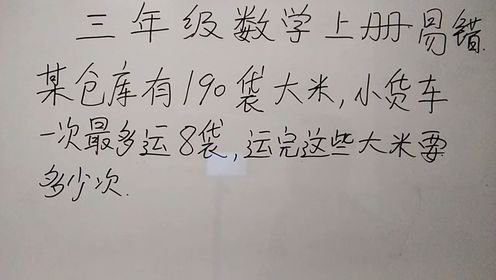 三年级数学上册易错
某仓库有190袋大米,小货车
一次最多运8袋,运完这些大米要
多少次.